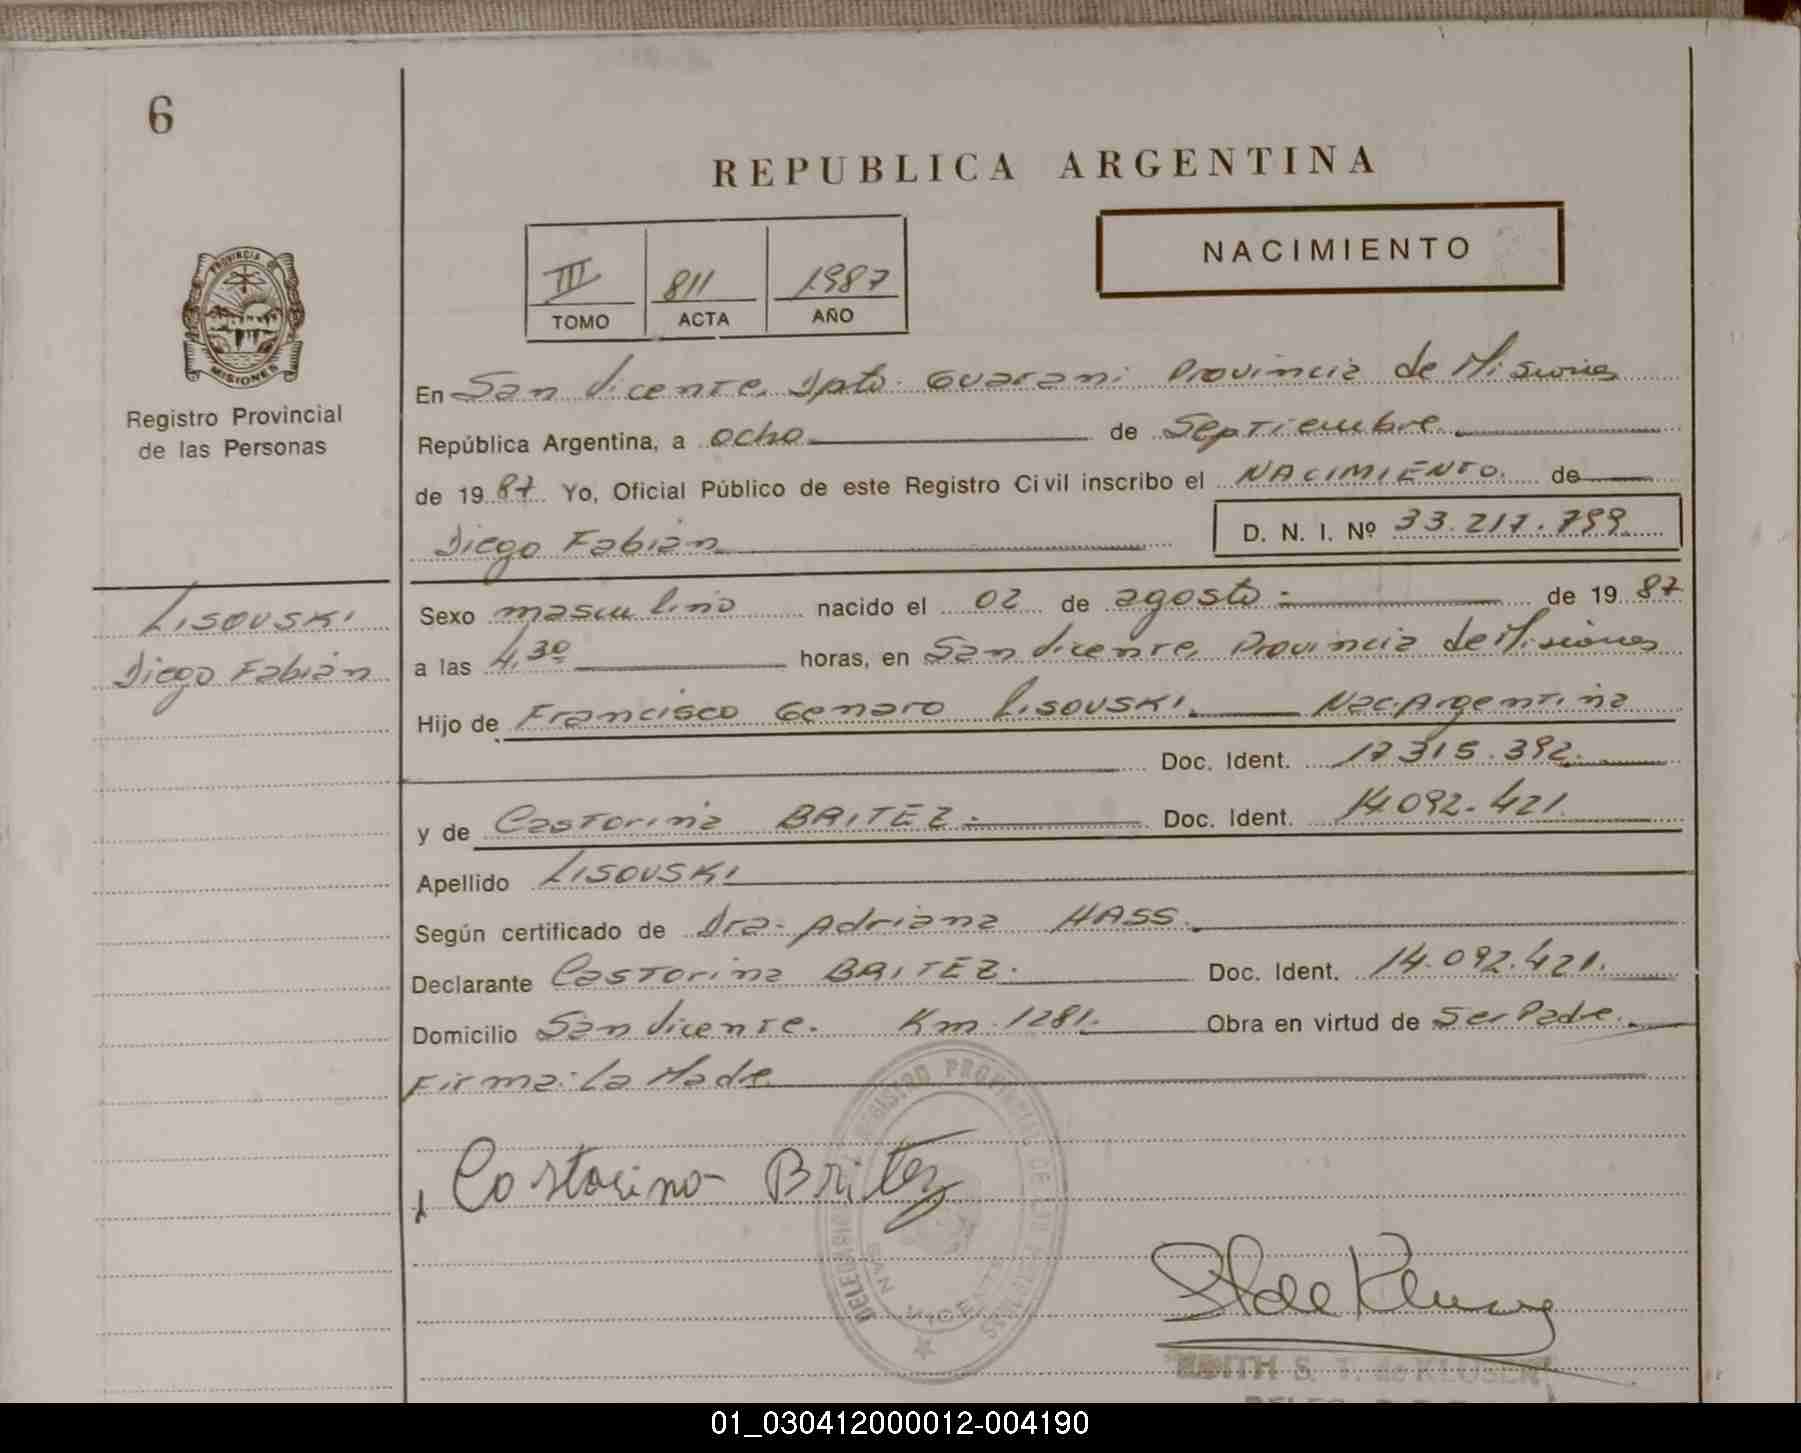 6
REPUBLICA ARGENTINA
NACIMIENTO
III 811 1987
TOMO ACTA AÑO
PROVINCIA DE
MISIONES
Registro Provincial
de las Personas
En San Vicente, Dpto. Guarani Provincia de Misiones
República Argentina, a ocho de Septiembre
de 1987 Yo, Oficial Público de este Registro Civil inscribo el NACIMIENTO. de
Diego Fabián D. N. I. Nº 33.217.799
LISOVSKI
Diego Fabián
Sexo masculino nacido el 02 de agosto.- de 1987
a las 4,30 horas, en San Vicente, Provincia de Misiones
Hijo de Francisco Genaro LISOVSKI. Nac. Argentina
Doc. Ident. 17.315.392.
y de Castorina BRITEZ.- Doc. Ident. 14.092.421.
Apellido LISOVSKI
Según certificado de Dra. Adriana HASS.
Declarante Castorina BRITEZ. Doc. Ident. 14.092.421.
Domicilio San Vicente. Km. 1281. Obra en virtud de Ser Padre.
Firma: La Made
Costorino Britez
REGISTRO PROVINCIAL DE LAS PERSONAS
SAN VICENTE
EDITH S. T. de KLUSENER
01_030412000012-004190